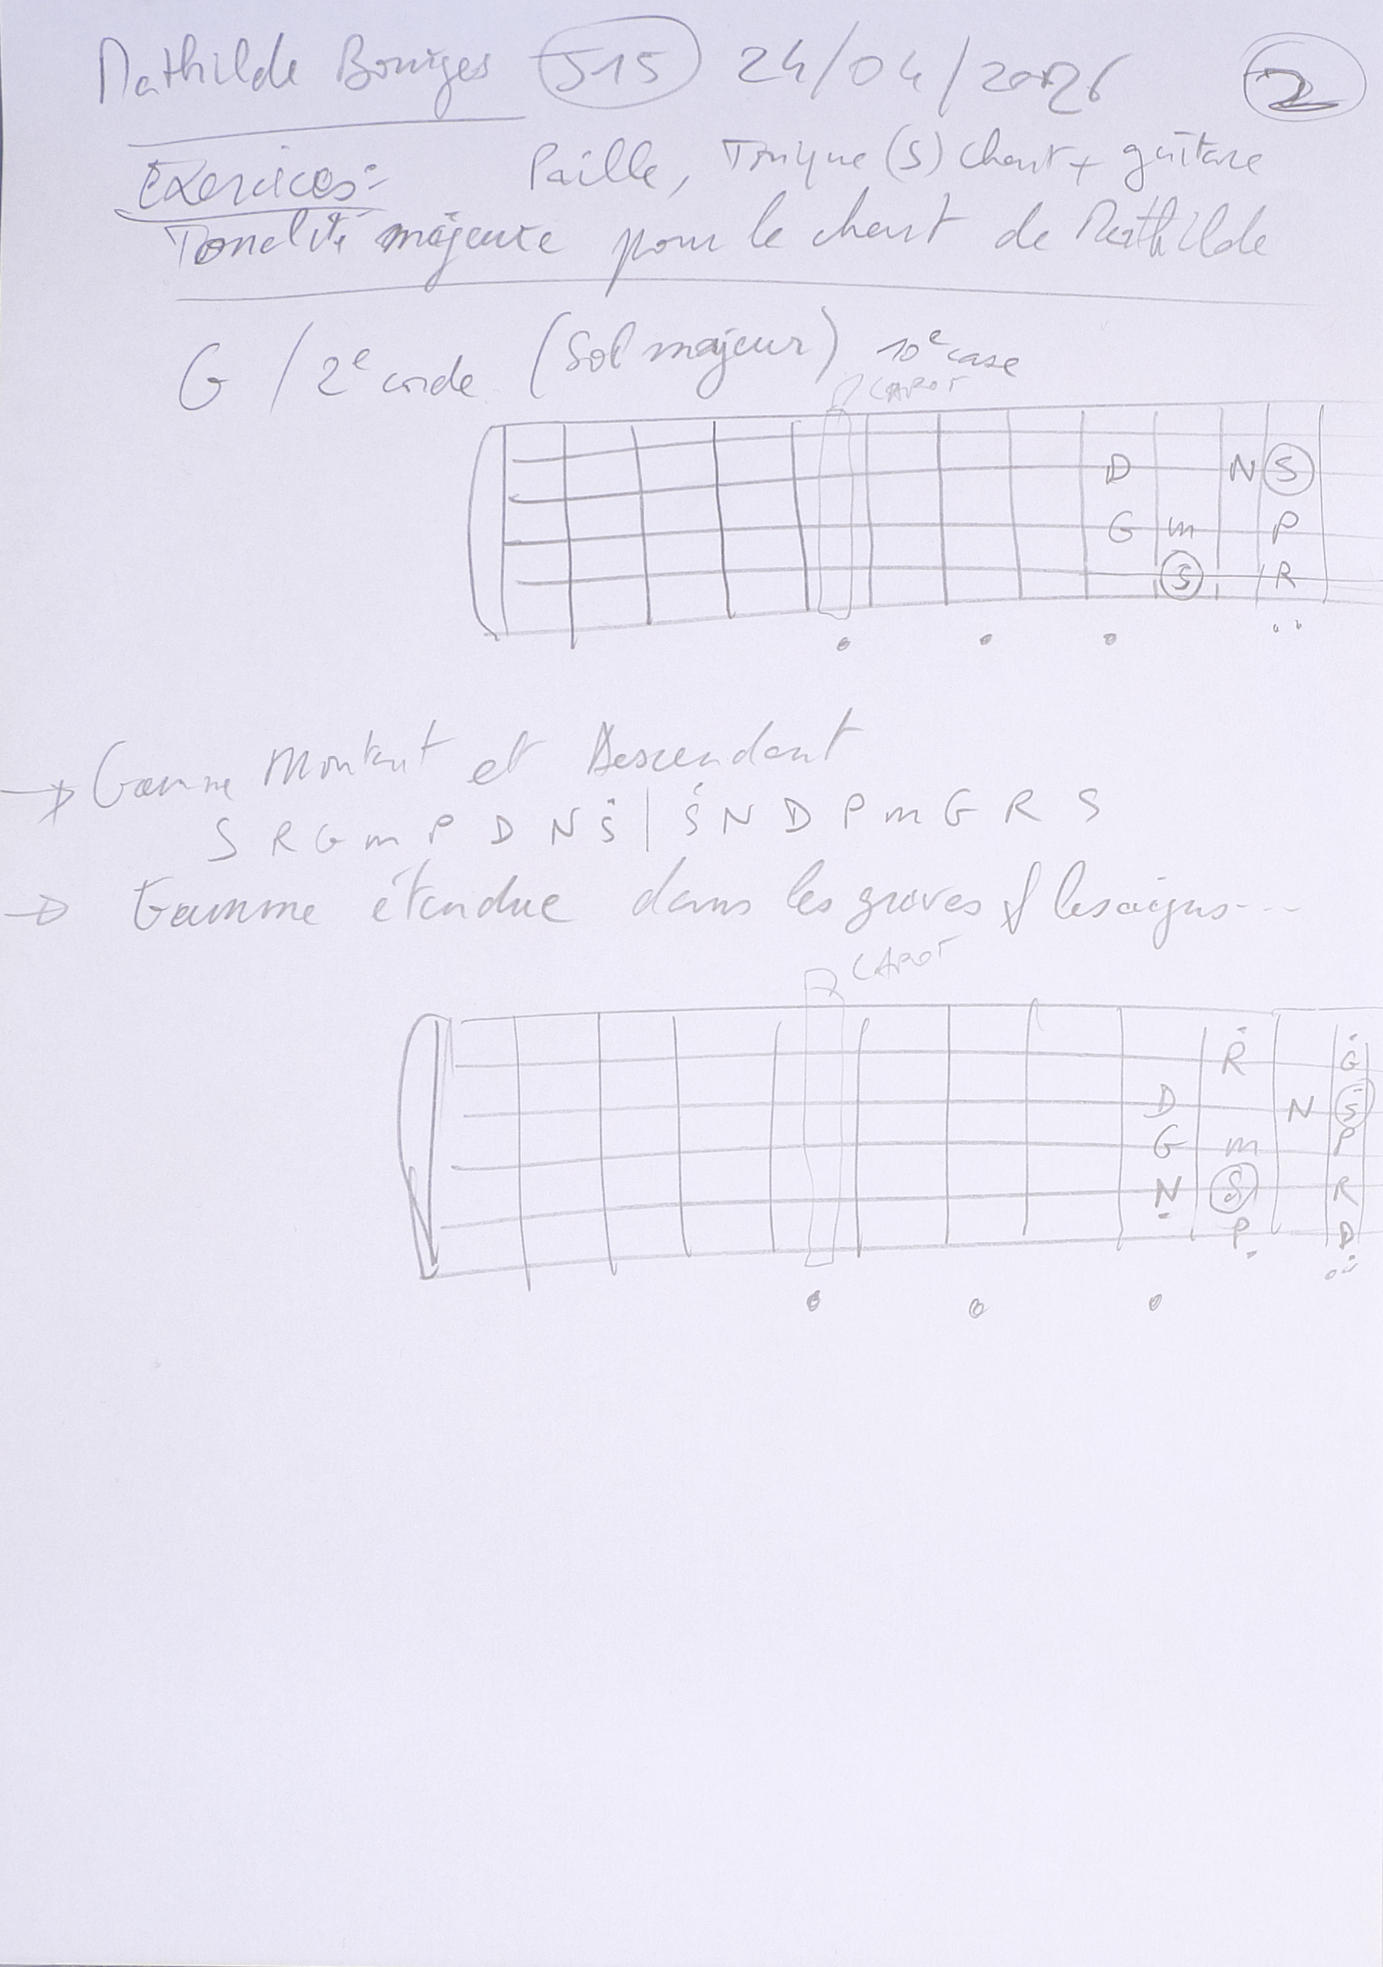 Mathilde Bouiges J15 24/04/2026 2
Exercices: Paille, Tonique (S) chant + guitare
Tonalité majeure pour le chant de Mathilde
G / 2e corde (Sol majeur) 10e case
CAPOT
D N S
G m P
S R
→ Gamme Montant et Descendant
S R G m P D N Ṡ | Ṡ N D P m G R S
→ Gamme étendue dans les graves & les aigus...
CAPOT
Ṙ Ġ
D N Ṡ
G m P
Ṇ S R
P̣ Ḍ